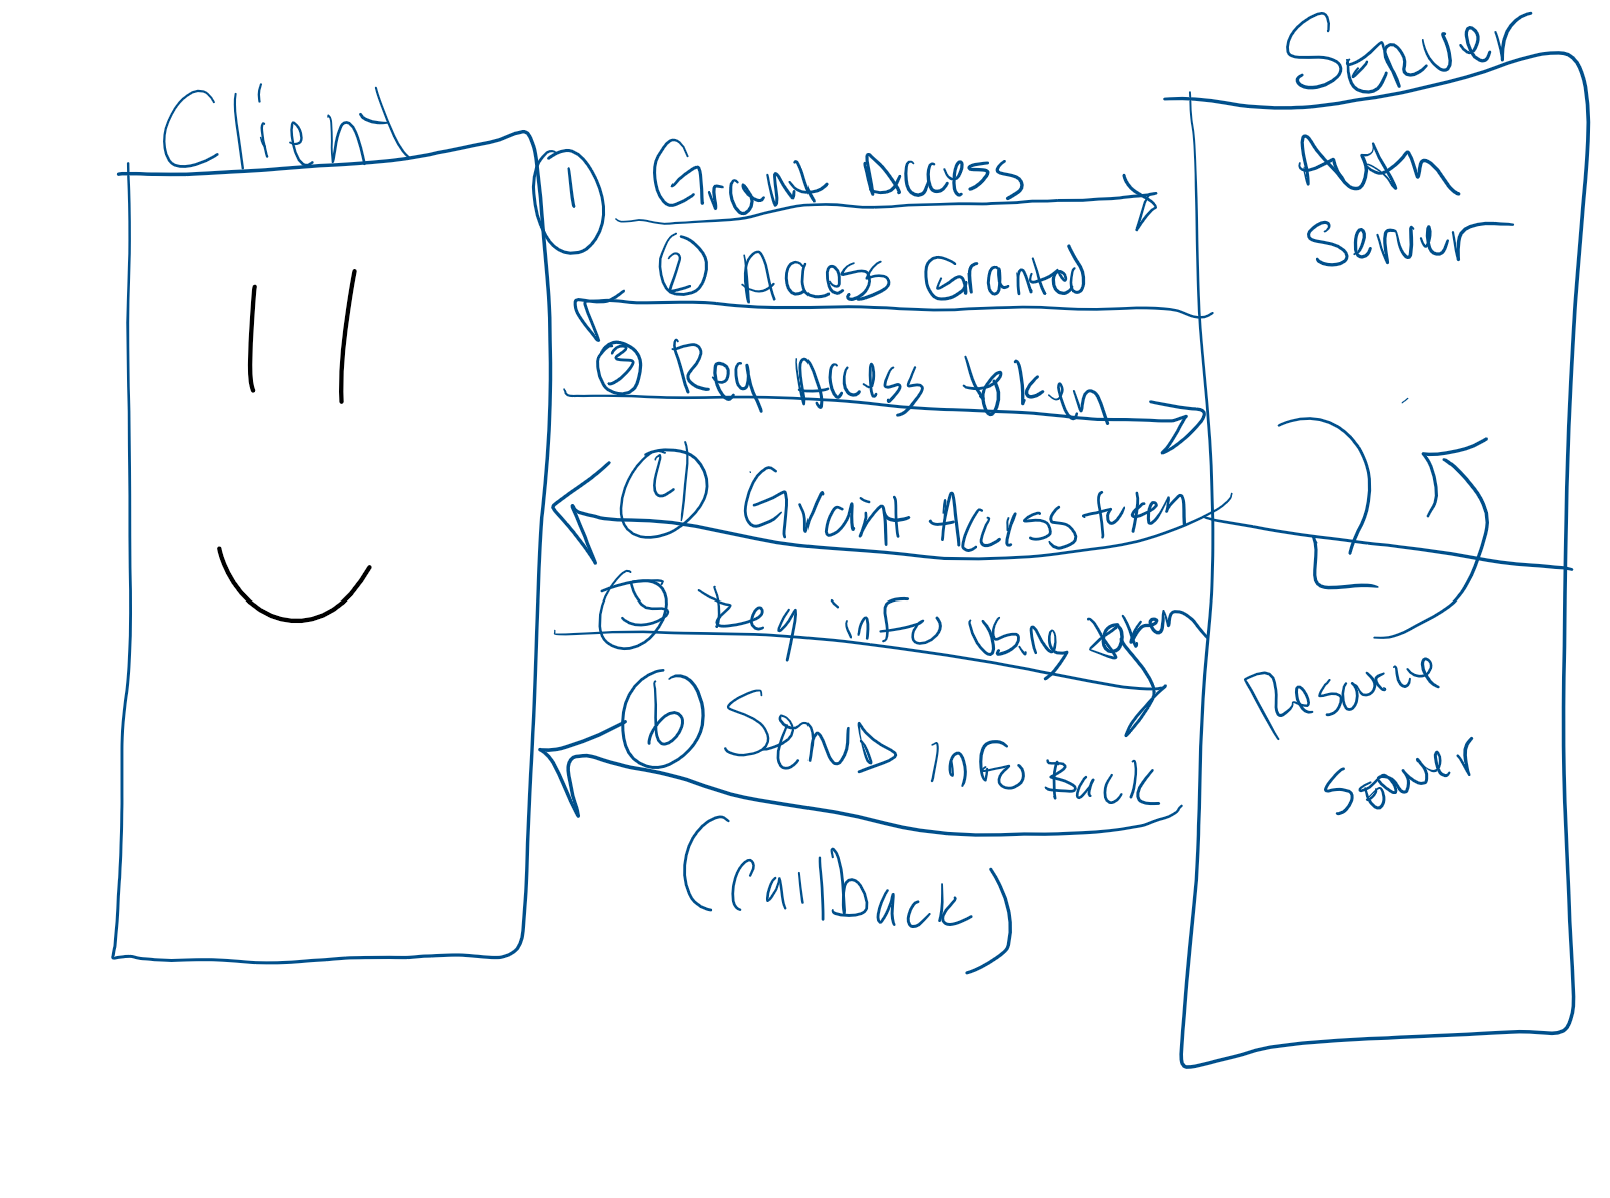 Client
Server
Auth
Server
1 Grant Access
2 Access Granted
3 Req Access token
4 Grant Access token
5 Req info using token
6 Send info Back
(callback)
Resource
Server